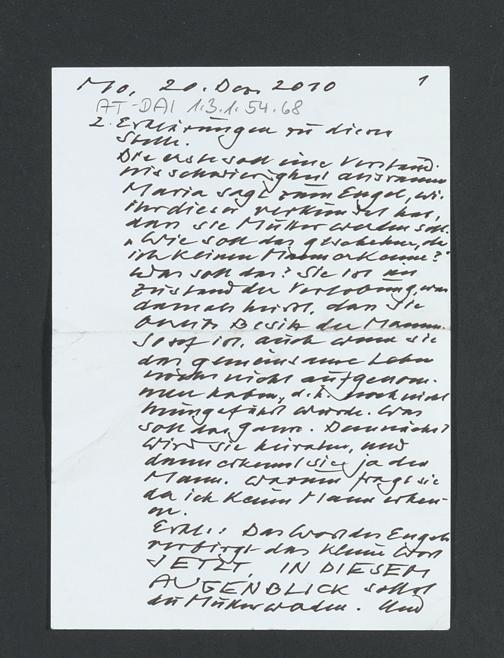 Mo, 20. Dez. 2010 1
AT-DAI 1.3.1.54.68
2 Erklärungen zu dieser
Stelle.
Die erste soll eine Verständ-
nisschwierigkeit ausräumen
Maria sagt zum Engel, wie
ihr dieser verkündet hat,
dass sie Mutter werden soll.
"Wie soll das geschehen, da
ich keinen Mann erkenne?"
Was soll das? Sie ist im
Zustand der Verlobung, was
damals heisst, dass sie
bereits Besitz des Mannes
Josef ist, auch wenn sie
das gemeinsame Leben
noch nicht aufgenom-
men haben, d.h. noch nicht
heimgeführt wurde. Was
soll das ganze. Demnächst
wird sie heiraten, und
dann erkennt sie ja den
Mann. Warum fragt sie
da ich keinen Mann erken-
ne.
Erkl.: Das Wort des Engels
verbirgt das kleine Wort
JETZT, IN DIESEM
AUGENBLICK sollst
du Mutter werden. Und